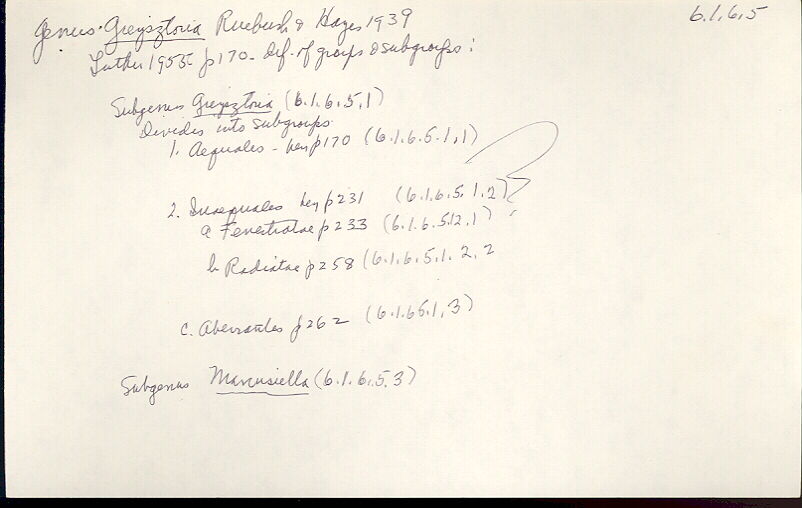 6.1.6.5
Genus Gieysztoria Ruebush & Hayes 1939
Luther 1955 p170 - def. of groups & subgroups:
Subgenus Gieysztoria (6.1.6.5.1)
Divides into subgroups.
1. Aequales - key p170 (6.1.6.5.1,1)
2. Inaequales key p231 (6.1.6.5.1.2)
a Fenestratae p233 (6.1.6.5.12.1)
b Radiatae p258 (6.1.6.5.1.2,2
c. Aberrantes p262 (6.1.65.1,3)
Subgenus Marcusiella (6.1.6.5.3)